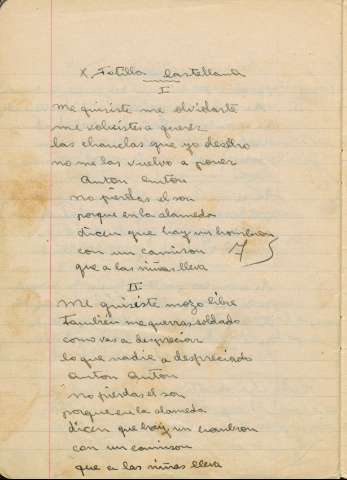 X, Jotilla Castellana
I
me quisiste me olvidaste
me volvistes a querer
las chanclas que yo desetro
no me las vuelvo a poner
Anton Anton
no pierdas el son
porque en la alameda
dicen que hay un hombron
con un camison
que a las niñas lleva
75
II
Me quisiste mozo libre
Tambien me querras soldado
como vas a despreciar
lo que nadie a despreciado
Anton Anton
no pierdas el son
porque en la alameda
dicen que hay un hombron
con un camison
que a las niñas lleva